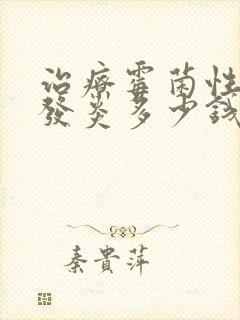 治療霉菌性
發炎多少錢
秦貴萍